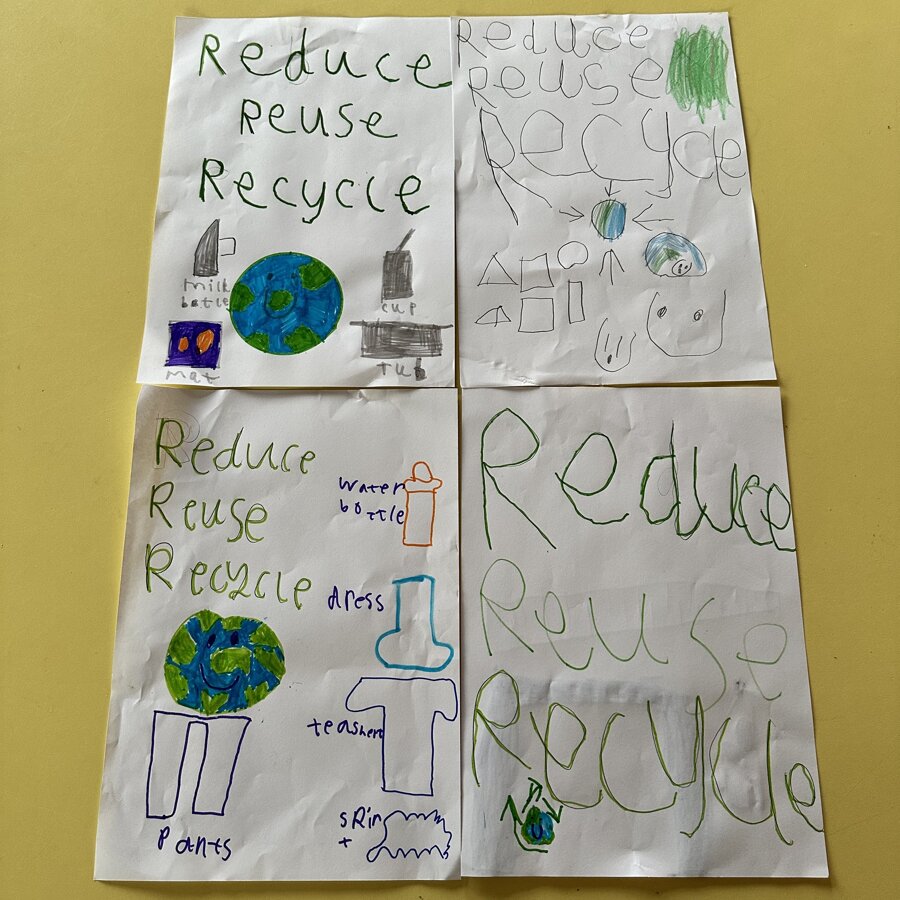 Reduce
Reuse
Recycle
milk
botle
cup
mat
Tub
Reduce
Reuse
Recycle
Reduce
Reuse
Recycle
water
bottle
dress
teashert
pants
sRir
t
Reduce
Reuse
Recycle